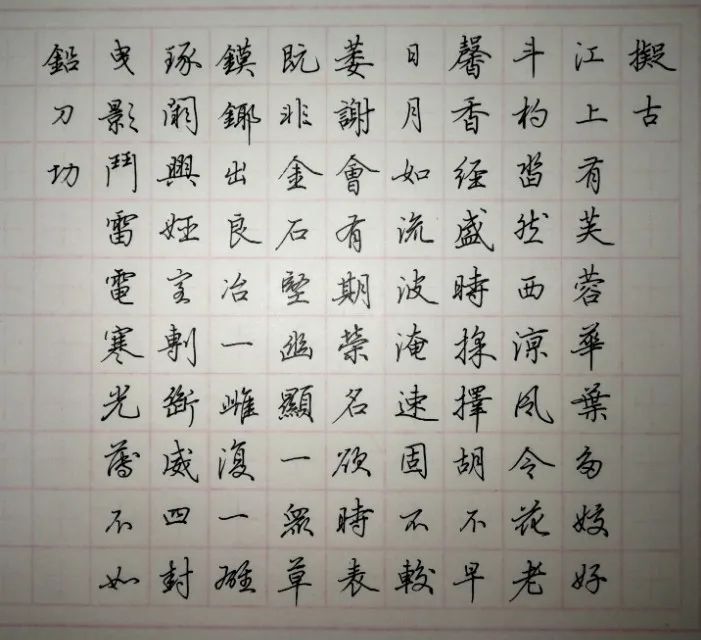 擬古
江上有芙蓉華葉多姣好
斗杓沓然西涼風令花老
馨香經盛時採擇胡不早
日月如流波淹速固不較
萎謝會有期榮名欲時表
既非金石堅幽顯一眾草
鏌鎁出良冶一雌復一雄
琢闕興婭室剸斷威四封
曳影鬥雷電寒光薄不如
鉛刀切